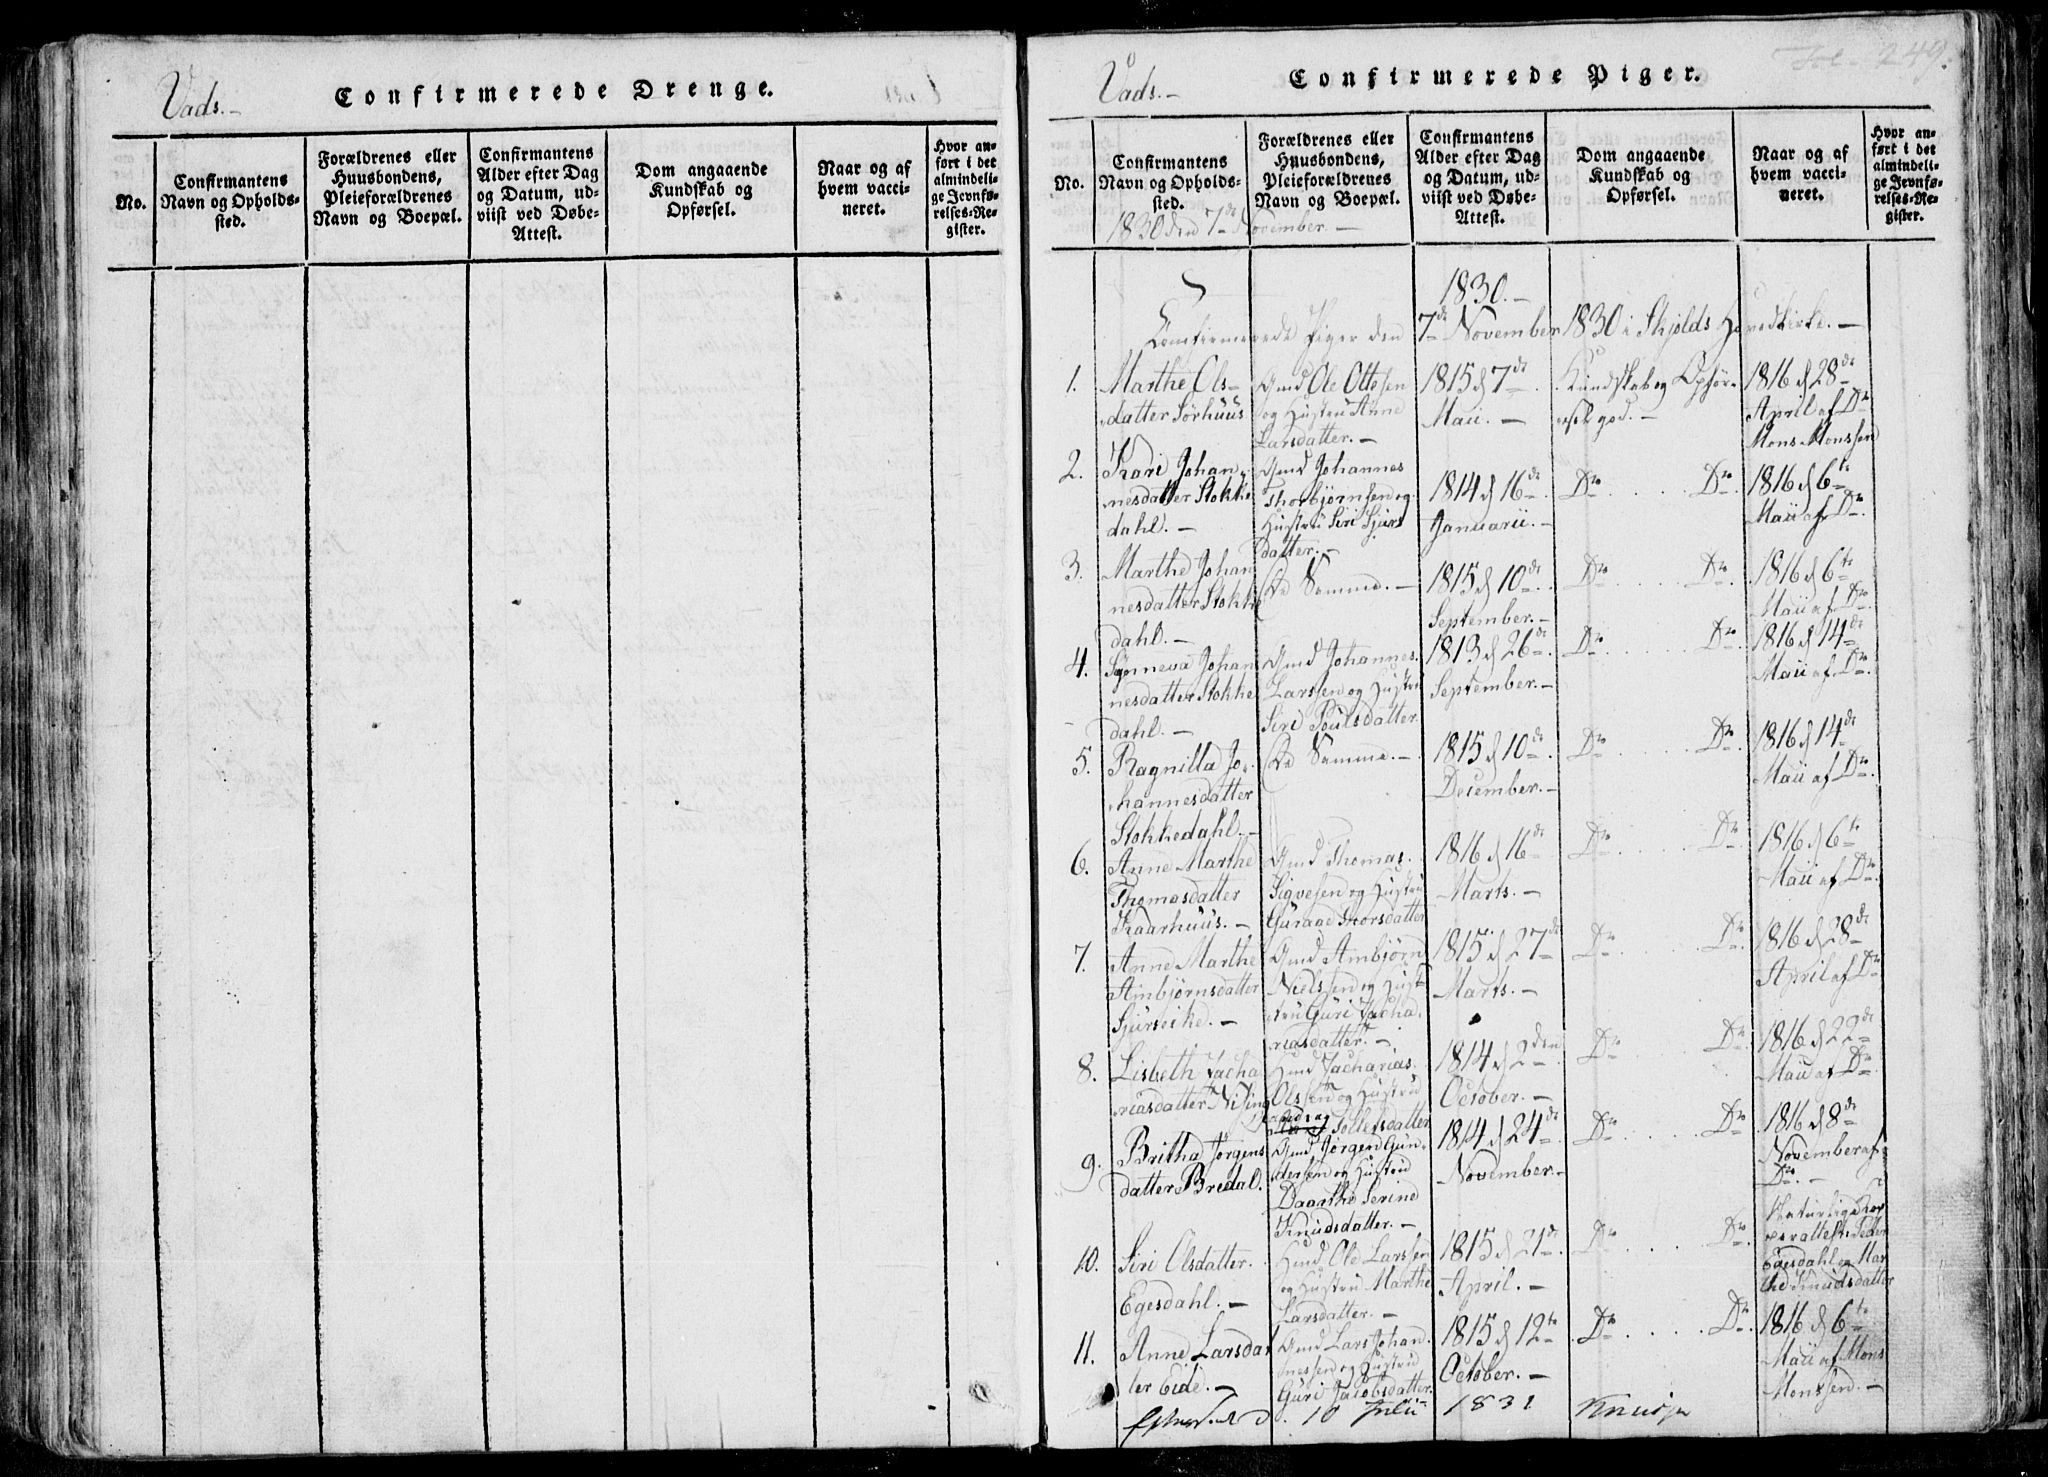 Vads.-
Confirmerede Drenge.
No.
Confirmantens
Navn og Opholds-
sted.
Forældrenes eller
Huusbondens,
Pleieforældrenes
Navn og Boepæl.
Confirmantens
Alder efter Dag
og Datum, ud-
viist ved Døbe-
Attest.
Dom angaaende
Kundskab og
Opførsel.
Naar og af
hvem vacci-
neret.
Hvor an-
ført i det
almindeli-
ge Jevnfø-
relses-Re-
gister.
Fol. 249.
Vads.-
Confirmerede Piger.
No.
Confirmantens
Navn og Opholds-
sted.
Forældrenes eller
Huusbondens,
Pleieforældrenes
Navn og Boepæl.
Confirmantens
Alder efter Dag
og Datum, ud-
viist ved Døbe-
Attest.
Dom angaaende
Kundskab og
Opførsel.
Naar og af
hvem vacci-
neret.
Hvor an-
ført i det
almindeli-
ge Jevnfø-
relses-Re-
gister.
1830 den 7de November.-
1830.-
Confirmerede Piger den 7de November 1830 i Skjolds Hovedkirke.-
1.
Marthe Ols-
datter Sørhuus
Gmd Ole Ottesen
og Hustru Anne
Larsdatter.-
1815 d 7de
Maii.-
Kundskab og Opfør-
sel god.-
1816 d 28de
April af Dr
Mons Monssen
2.
Kari Johan-
nesdatter Stokke
dahl.-
Gmd Johannes
Thorbjørnsen og
Hustru Siri Sjurs
datter.-
1814 d 16de
Januarii.-
Do . . . . Do
1816 d 6te
Maii af Do.
3.
Marthe Johan
nesdatter Stokke
dahl.-
De Samme.-
1815 d 10de
September.-
Do . . . . Do
1816 d 6te
Maii af Do
4.
Synneva Johan
nesdatter Stokke
dahl.-
Gmd Johannes
Larssen og Hustru
Siri Poulsdatter
1813 d 26de
September.-
Do . . . . Do
1816 d 14de
Maii af Do
5.
Ragnilla Jo-
hannesdatter
Stokkedahl.-
De Samme.-
1815 d 10de
December.-
Do . . . . Do
1816 d 14de
Maii af Do
6.
Anne Marthe
Thomasdatter
Kaarhuus.-
Gmd Thomas
Sigvesen og Hustru
Gurage Thorsdatter
1816 d 16de
Marts.-
Do . . . . Do
1816 d 6te
Maii af Do
7.
Anne Marthe
Ambjørnsdatter
Sjurseike.-
Gmd Ambjørn
Nielssen og Hust
tru Guri Zacha
riasdatter.-
1815 d 27de
Marts.-
Do . . . . Do
1816 d 28de
April af Do
8.
Lisbeth Zacha
riasdatter
Hmd Zacharias
Olssen og Hustrue
Tollefsdatter
1814 d 2den
October.-
Do . . . . Do
1816 d 22de
Maii af Do
9.
Britha Jørgens
datter Bredal.
Gmd Jørgen Gun-
dersen og Hustru
Daarthe Serine
Knudsdatter.-
1814 d 24de
November.-
Do . . . . Do
1816 d 8de
November af
Do.-
10.
Siri Olsdatter
Egesdahl.-
Hmd Ole Larssen
og Hustru Marthe
Larsdatter.-
1815 d 21de
April.-
Do . . . . Do
Naturlige Kop
per attest: Peder
Egesdahl og Mar
the Knudsdatter
11.
Anne Larsdat
ter Eide.-
Gmd Lars Johan
nessen og Hustru
Guri Jacobsdatter
1815 d 12te
October.-
Do . . . . Do
1816 d 6te
Maii af Mons
Monssen.-
10 Julii 1831